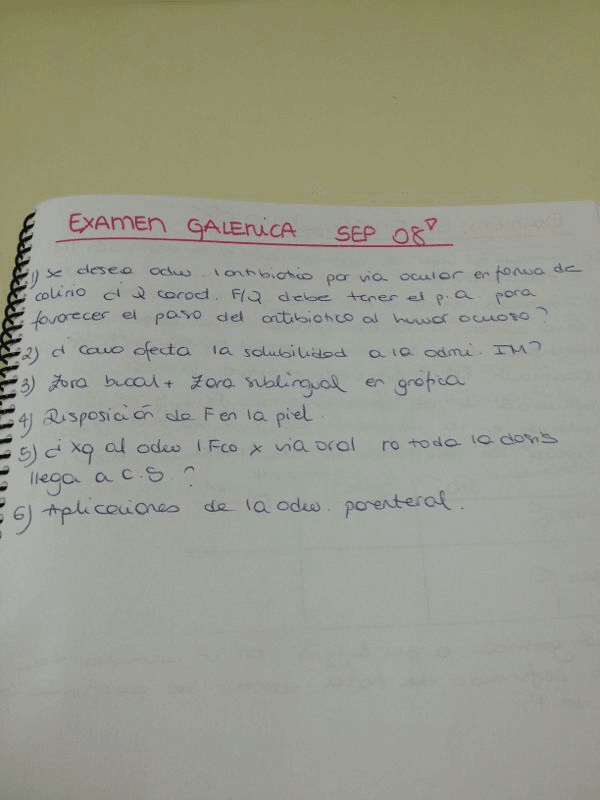 EXAMEN GALENICA SEP 08
1) Se desea adm. 1 antibiotico por via ocular en forma de
colirio ¿ Q caract. F/Q debe tener el p.a. para
favorecer el paso del antibiotico al humor acuoso?
2) ¿ Como afecta la solubilidad a la admi. IM?
3) Zona bucal + Zona sublingual en gráfica
4) Disposición de F en la piel.
5) ¿ xq al adm 1 Fco x via oral no toda la dosis
llega a C.S.?
6) Aplicaciones de la adm. parenteral.